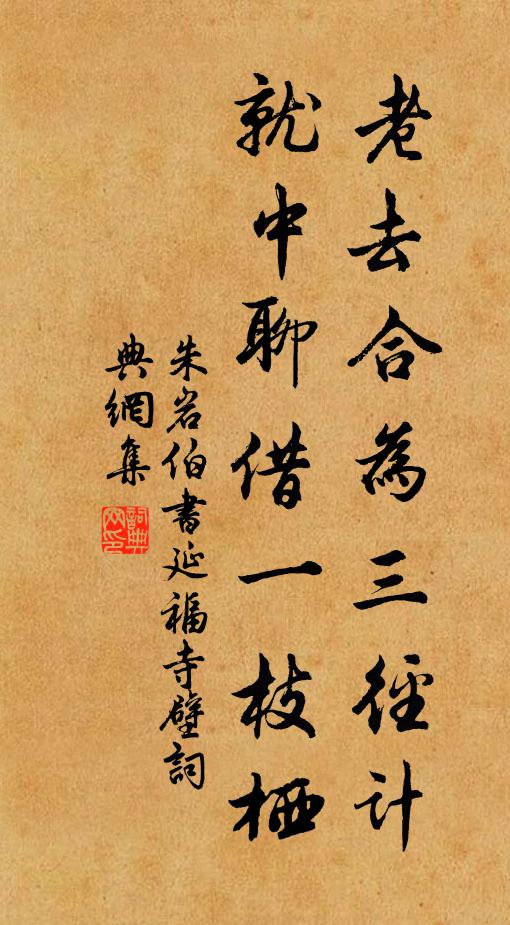 老去合為三徑計
就中聊借一枝栖
朱岩伯書延福寺壁詞
典網集
詞典網印